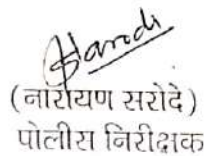 (नारायण सरोदे)
पोलीस निरीक्षक